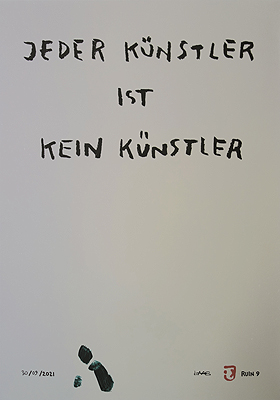 JEDER KÜNSTLER
IST
KEIN KÜNSTLER
30/07/2021
RUIN 9